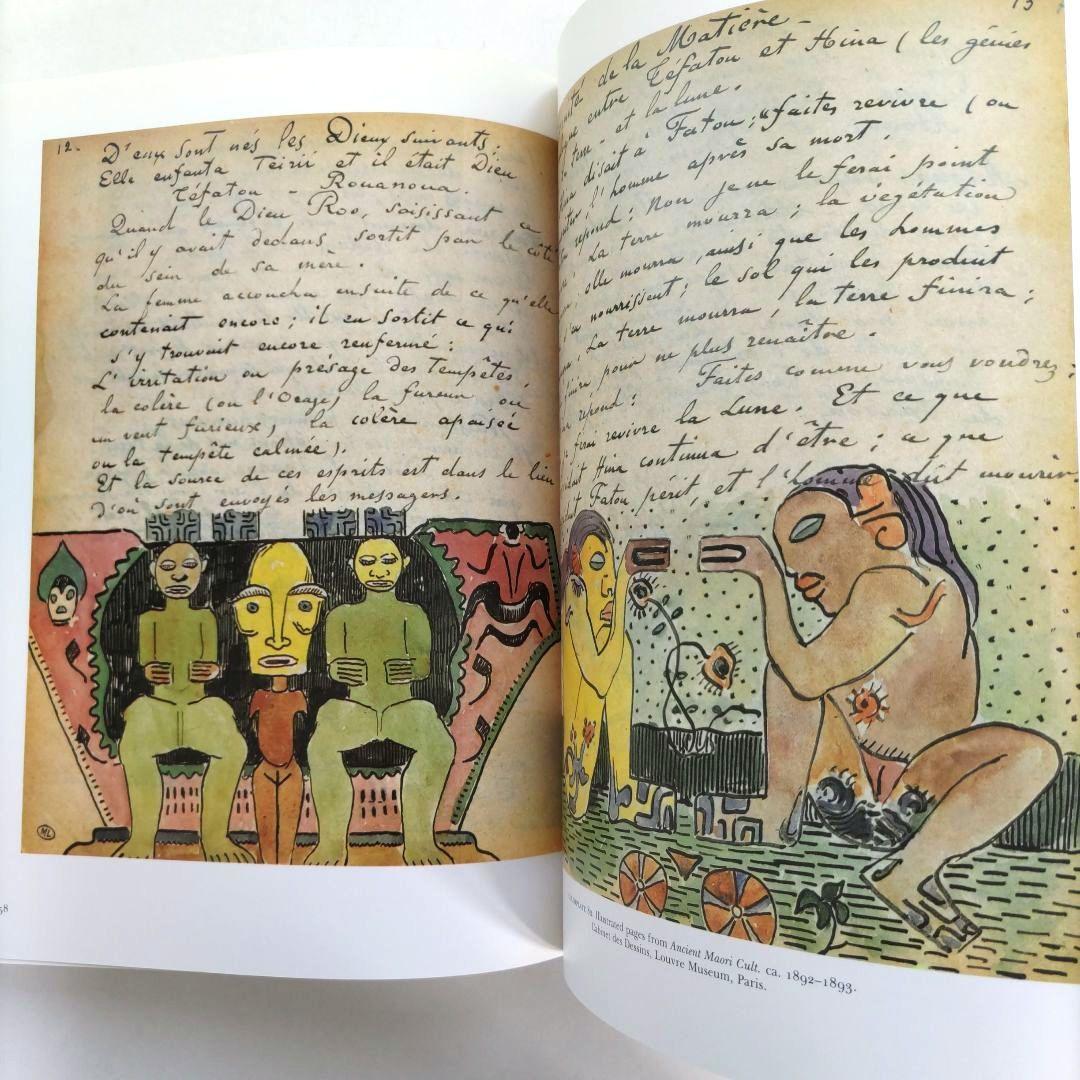 12.
D'eux sont nés les Dieux suivants:
Elle enfanta Teirii et il était Dieu
Téfatou - Rouanoua.
Quand le Dieu Roo, saisissant ce
qu'il y avait dedans, sortit par le côté
du sein de sa mère.
La femme accoucha ensuite de ce qu'elle
contenait encore; il en sortit ce qui
s'y trouvait encore renfermé:
L'irritation ou présage des tempêtes,
la colère (ou l'Orage) la fureur ou
un vent furieux, la colère apaisée
ou la tempête calmée).
Et la source de ces esprits est dans le lieu
d'où sont envoyés les messagers.
ML
58
13
de la Matière -
entre Téfatou et Hina (les génies
et la lune.
disait à Fatou; "faites revivre (ou
l'homme après sa mort.
répond: Non je ne le ferai point
La terre mourra; la végétation
elle mourra, ainsi que les hommes
nourrissent; le sol qui les produit
La terre mourra, la terre finira;
pour ne plus renaître.
répond: Faites comme vous voudrez;
ferai revivre la Lune. Et ce que
Hina continua d'être; ce que
Fatou périt, et l'homme dût mourir.
Illustrated pages from Ancient Maori Cult. ca. 1892–1893.
Cabinet des Dessins, Louvre Museum, Paris.